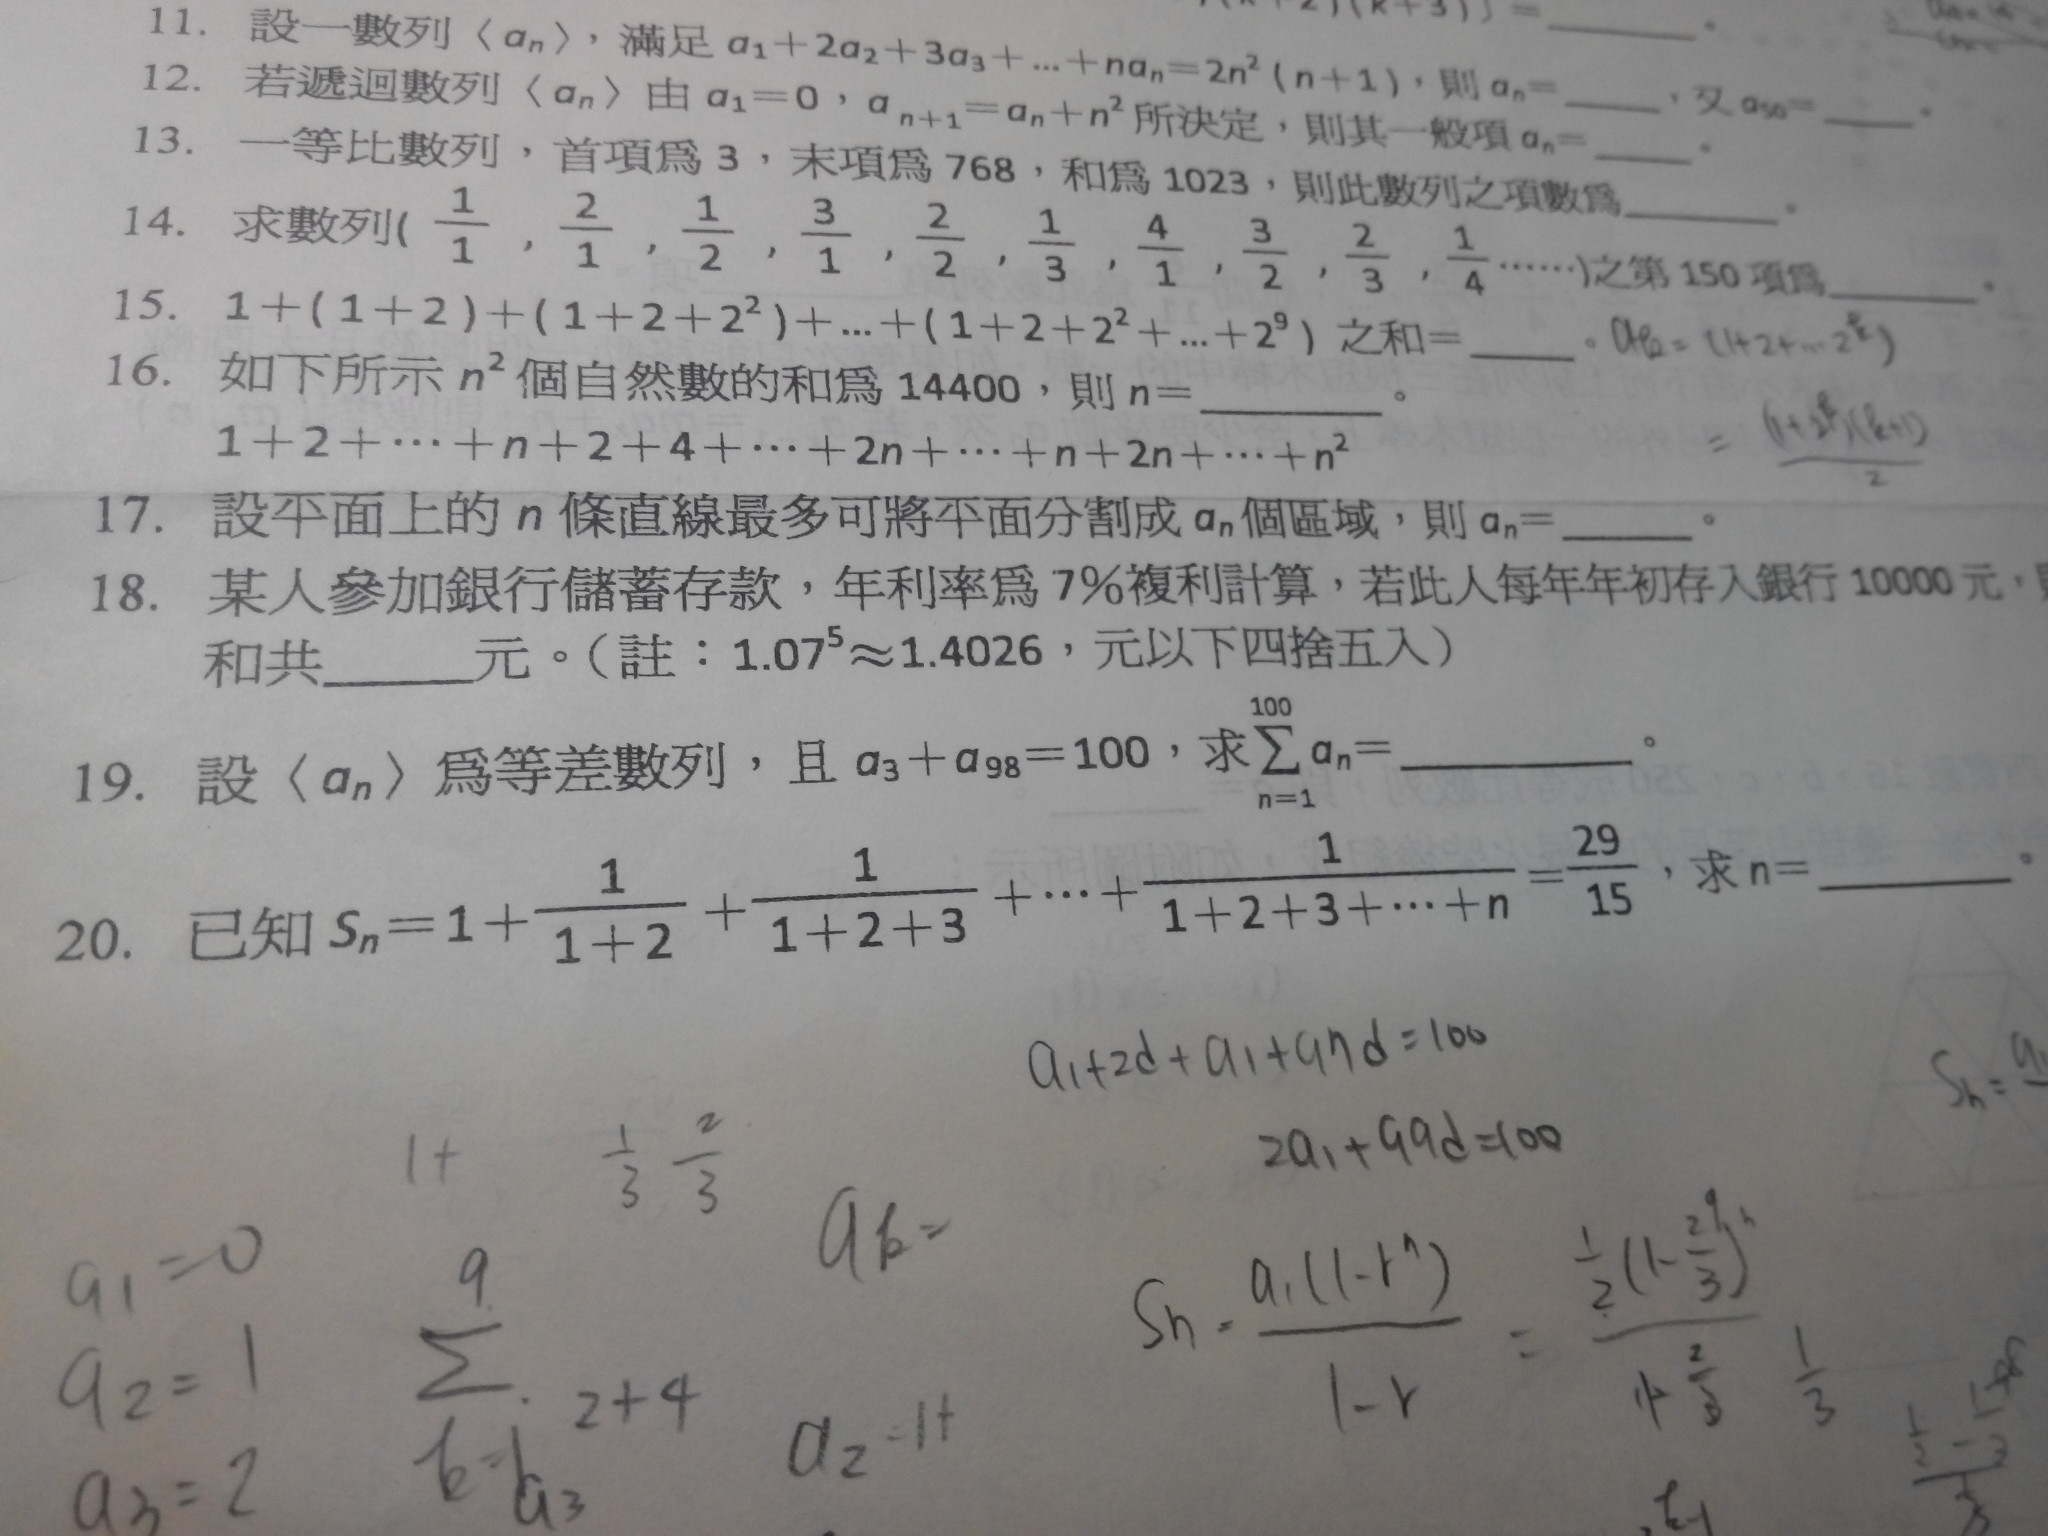 11. 設一數列〈aₙ〉，滿足 a₁＋2a₂＋3a₃＋…＋naₙ＝2n²(n＋1)，則 aₙ＝____，又 a₅₀＝____。
12. 若遞迴數列〈aₙ〉由 a₁＝0，aₙ₊₁＝aₙ＋n² 所決定，則其一般項 aₙ＝____。
13. 一等比數列，首項爲 3，末項爲 768，和爲 1023，則此數列之項數爲____。
14. 求數列( 1/1 , 2/1 , 1/2 , 3/1 , 2/2 , 1/3 , 4/1 , 3/2 , 2/3 , 1/4 ……)之第 150 項爲____。
15. 1＋(1＋2)＋(1＋2＋2²)＋…＋(1＋2＋2²＋…＋2⁹) 之和＝____。
16. 如下所示 n² 個自然數的和爲 14400，則 n＝____。
1＋2＋…＋n＋2＋4＋…＋2n＋…＋n＋2n＋…＋n²
17. 設平面上的 n 條直線最多可將平面分割成 aₙ 個區域，則 aₙ＝____。
18. 某人參加銀行儲蓄存款，年利率爲 7%複利計算，若此人每年年初存入銀行 10000 元，
和共____元。(註：1.07⁵≈1.4026，元以下四捨五入)
19. 設〈aₙ〉爲等差數列，且 a₃＋a₉₈＝100，求 Σ(n=1→100) aₙ＝____。
20. 已知 Sₙ＝1＋1/(1＋2)＋1/(1＋2＋3)＋…＋1/(1＋2＋3＋…＋n)＝29/15，求 n＝____。
a₁+2d+a₁+97d=100
2a₁+99d=100
1+ 1/3 2/3
a₁=0
a₂=1
a₃=2
Sn = a₁(1-rⁿ)/(1-r) =
2+4
a₂=1+